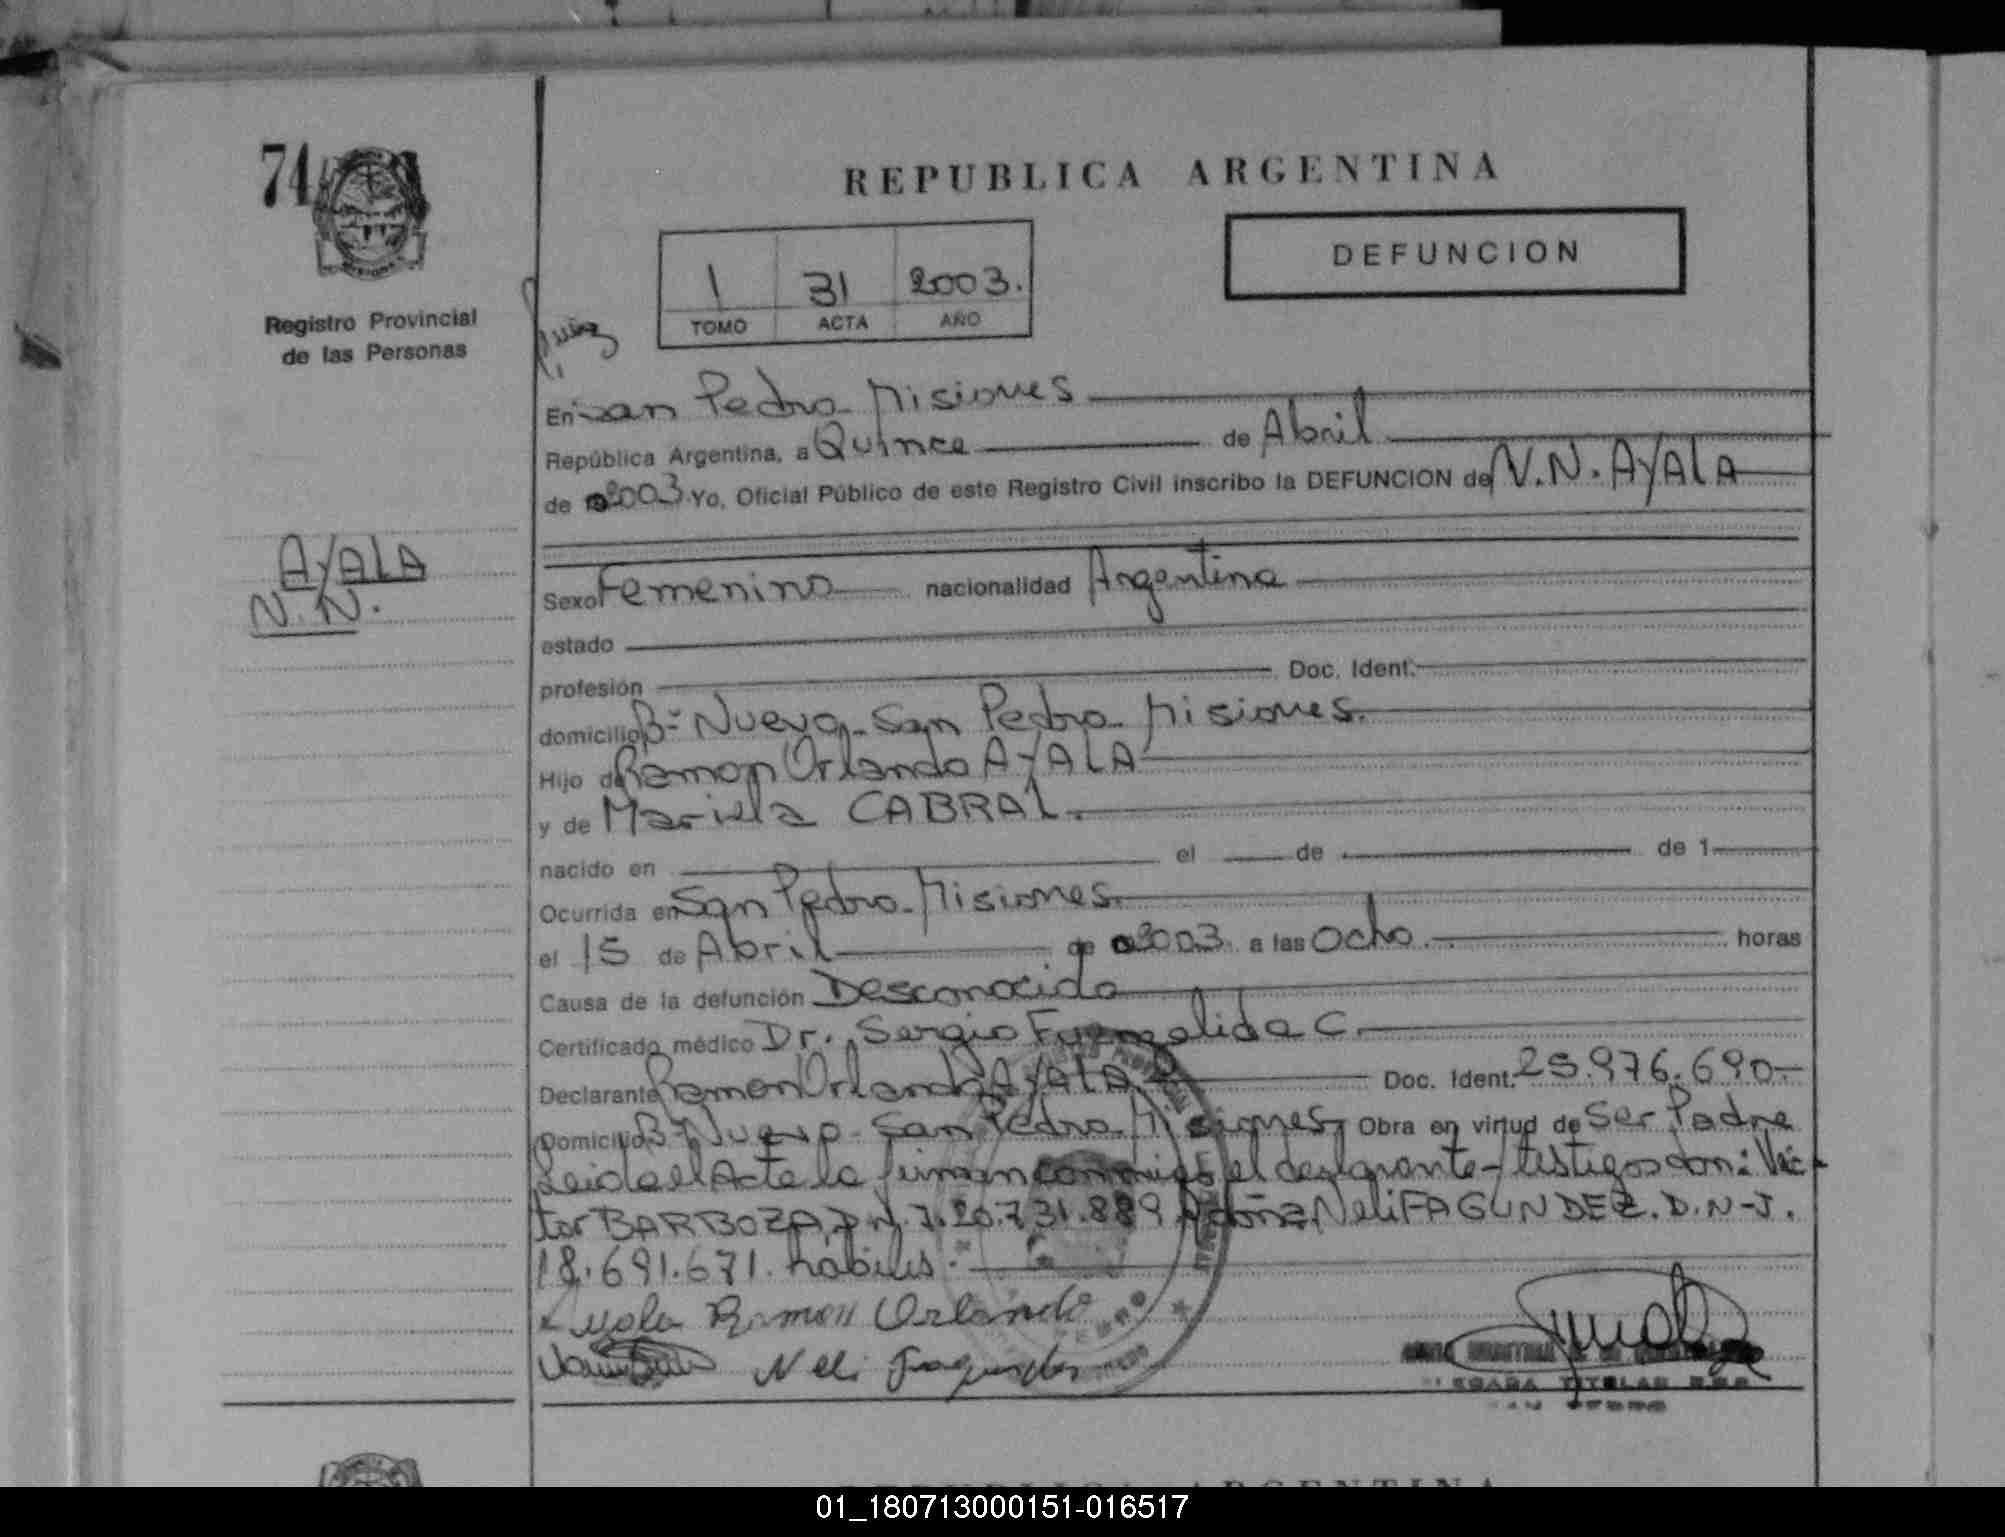 74
REPUBLICA ARGENTINA
DEFUNCION
1 31 2003.
TOMO ACTA AÑO
Registro Provincial
de las Personas
En San Pedro Misiones
República Argentina, a Quince de Abril
de 2003. Yo, Oficial Público de este Registro Civil inscribo la DEFUNCION de N.N. AYALA
AYALA
N. N.
Sexo Femenino nacionalidad Argentina
estado
profesión Doc. Ident.
domicilio Bº Nuevo San Pedro Misiones.
Hijo de Ramon Orlando AYALA
y de Mariela CABRAL.
nacido en el de de 1
Ocurrida en San Pedro Misiones.
el 15 de Abril de 2003 a las Ocho horas
Causa de la defunción Desconocida
Certificado médico Dr. Sergio Fuenzalida C.
Declarante Ramon Orlando AYALA Doc. Ident. 25.976.690
Domicilio Bº Nuevo San Pedro Misiones Obra en virtud de Ser Padre
Leida el Acta la firman conmigo el declarante testigos don: Vic-
tor BARBOZA, D.N.I. 20.731.889 doña Neli FAGUNDEZ. D.N.I.
18.691.671. habiles.
Ayala Ramon Orlando
Neli Fagundez
TITULAR
SAN PEDRO
REPUBLICA ARGENTINA
01_180713000151-016517